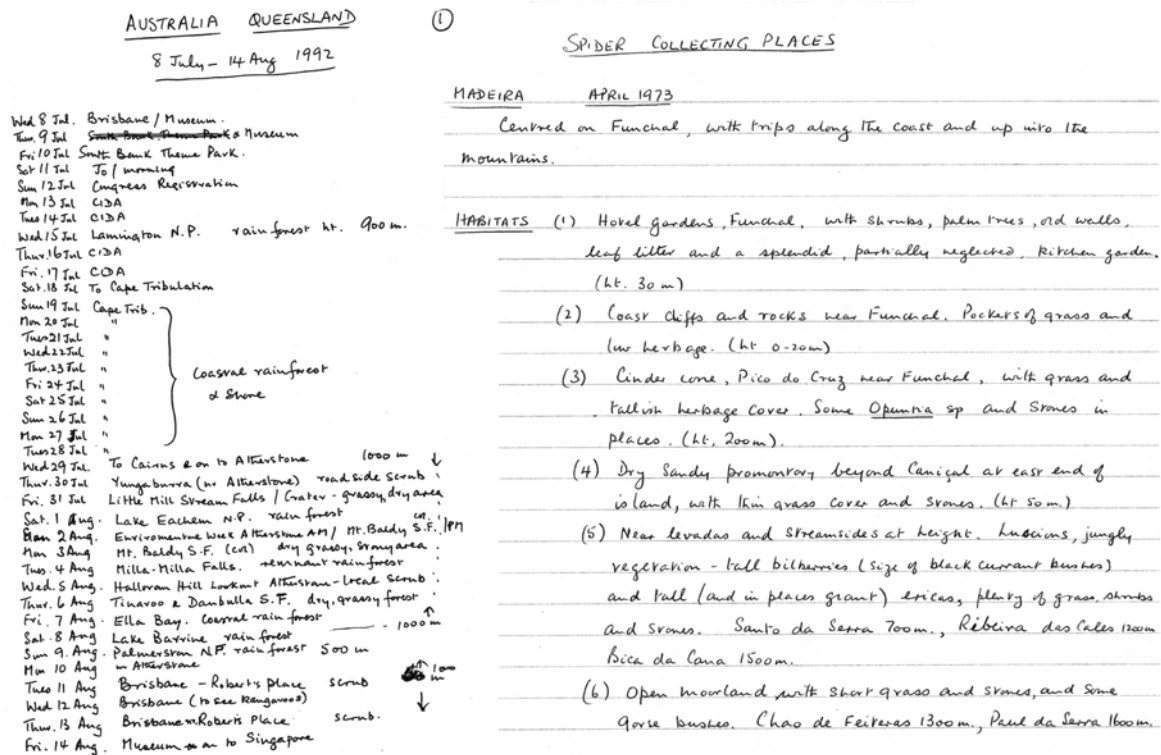 AUSTRALIA QUEENSLAND
①
8 July – 14 Aug 1992
Wed 8 Jul. Brisbane / Museum.
Thur. 9 Jul South Bank Theme Park & Museum
Fri 10 Jul South Bank Theme Park.
Sat 11 Jul To / morning
Sun 12 Jul Congress Registration
Mon 13 Jul CIDA
Tues 14 Jul CIDA
Wed 15 Jul Lamington N.P. rainforest ht. 900 m.
Thur. 16 Jul CIDA
Fri. 17 Jul CIDA
Sat. 18 Jul To Cape Tribulation
Sun 19 Jul Cape Trib.
Mon 20 Jul "
Tues 21 Jul "
Wed 22 Jul "
Thur. 23 Jul "
Fri 24 Jul "
Sat 25 Jul "
Sun 26 Jul "
Mon 27 Jul "
Tues 28 Jul "
coastal rainforest
& shore
Wed 29 Jul. To Cairns & on to Atherstone 1000 m ↓
Thur. 30 Jul Yungaburra (nr Atherstone) roadside scrub "
Fri. 31 Jul Little Mill Stream Falls / Crater - grassy, dry area
Sat. 1 Aug. Lake Eachem N.P. rain forest
Sun 2 Aug. Environment Week Atherstone AM / Mt. Baldy S.F. /PM
Mon 3 Aug Mt. Baldy S.F. (cot) dry grassy, stony area
Tues. 4 Aug Milla-Milla Falls. remnant rainforest
Wed. 5 Aug. Halloran Hill Lookout Atherstone - local scrub
Thur. 6 Aug Tinaroo & Danbulla S.F. dry, grassy forest
Fri. 7 Aug. Ella Bay. Coastal rain forest ↑
Sat. 8 Aug Lake Barrine rain forest - 1000 m
Sun 9. Aug. Palmerston N.P. rain forest 500 m
Mon 10 Aug in Atherstone
Tues 11 Aug Brisbane - Robert's place scrub ↑ 100 m
Wed 12 Aug Brisbane (to see kangaroos) ↓
Thur. 13 Aug Brisbane Robert's Place scrub.
Fri. 14 Aug. Museum & on to Singapore
SPIDER COLLECTING PLACES
MADEIRA APRIL 1973
Centred on Funchal, with trips along the coast and up into the
mountains.
HABITATS (1) Hotel gardens, Funchal, with shrubs, palm trees, old walls,
leaf litter and a splendid, partially neglected, kitchen garden.
(ht. 30 m)
(2) Coast cliffs and rocks near Funchal. Pockets of grass and
low herbage. (ht 0-20m)
(3) Cinder cone, Pico do Cruz near Funchal, with grass and
tallish herbage cover. Some Opuntia sp and stones in
places. (ht. 200m).
(4) Dry sandy promontory beyond Caniçal at east end of
island, with thin grass cover and stones. (ht 50 m.)
(5) Near levadas and streamsides at height. Luscious, jungly
vegetation - tall bilberries (size of black currant bushes)
and tall (and in places giant) ericas, plenty of grass, shrubs
and stones. Santo da Serra 700m., Ribeira das Cales 1200m
Bica da Cana 1500m.
(6) Open moorland, with short grass and stones, and some
gorse bushes. Chao de Feiteras 1300m., Paul da Serra 1600m.